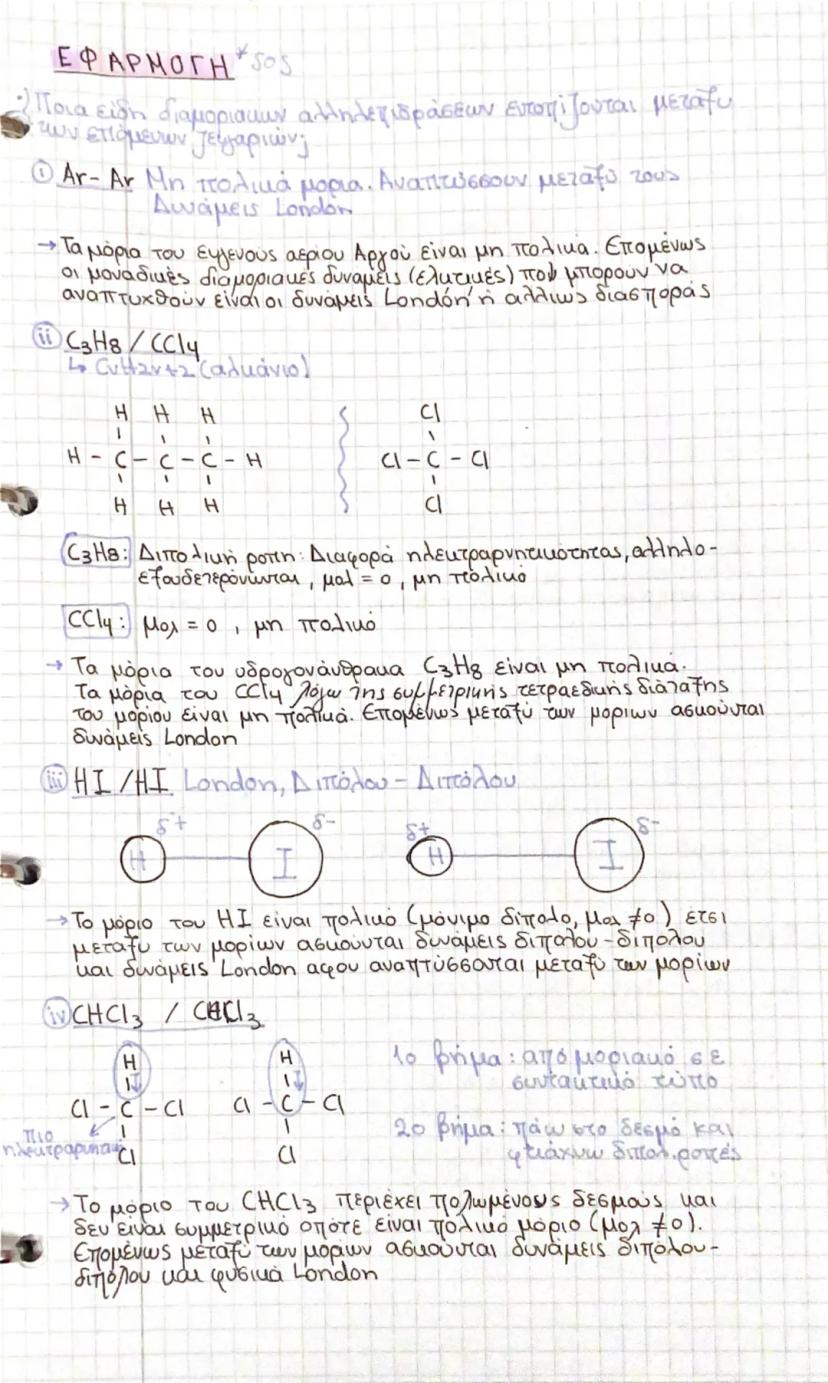 ΕΦΑΡΜΟΓΗ *sos
·) Ποια είδη διαμοριακων αλληλεπιδράσεων εντοπίζονται μεταξυ
των επόμενων ζευγαριών;
i Ar-Ar Μη πολικά μορια. Αναπτύσσουν μεταξύ τους
Δυνάμεις London
→ Τα μόρια του ευγενους αεριου Αργού είναι μη πολικα. Επομένως
οι μοναδικές διαμοριακές δυναμεις (ελκτικές) που μπορουν να
αναπτυχθούν είναι οι δυνάμεις London ή αλλιως διασποράς
ii C3H8 / CCl4
↳ CνH2ν+2 (αλκάνιο)
H H H Cl
H - C - C - C - H Cl - C - Cl
H H H Cl
C3H8: Διπολική ροπη: Διαφορά ηλεκτραρνητικότητας, αλληλο-
εξουδετερόνωνται, μολ = 0, μη πολικό
CCl4: μολ = 0, μη πολικό
→ Τα μόρια του υδρογονάνθρακα C3H8 είναι μη πολικά.
Τα μόρια του CCl4 λόγω της συμμετρικής τετραεδικής διάταξης
του μορίου είναι μη πολικά. Επομένως μεταξύ των μοριων ασκούνται
δυνάμεις London
iii HI / HI London, Διπόλου - Διπόλου
δ+ δ- δ+ δ-
H I H I
→ Το μόριο του HI είναι πολικό (μόνιμο δίπολο, μολ ≠0) έτσι
μεταξυ των μορίων ασκούνται δυνάμεις διπολου-διπολου
και δυνάμεις London αφου αναπτύσσονται μεταξύ των μορίων
iv CHCl3 / CHCl3
H H 1ο βήμα: από μοριακό σε
συντακτικό τύπο
Cl - C - Cl Cl - C - Cl
πιο 2ο βήμα: πάω στο δεσμό και
ηλεκτραρνητικό Cl Cl φτιάχνω διπολ. ροπές
→ Το μόριο του CHCl3 περιέχει πολωμένους δεσμους και
δεν είναι συμμετρικό οπότε είναι πολικό μόριο (μολ ≠0).
Επομένως μεταξύ των μορίων ασκούνται δυνάμεις διπόλου-
διπόλου και φυσικά London